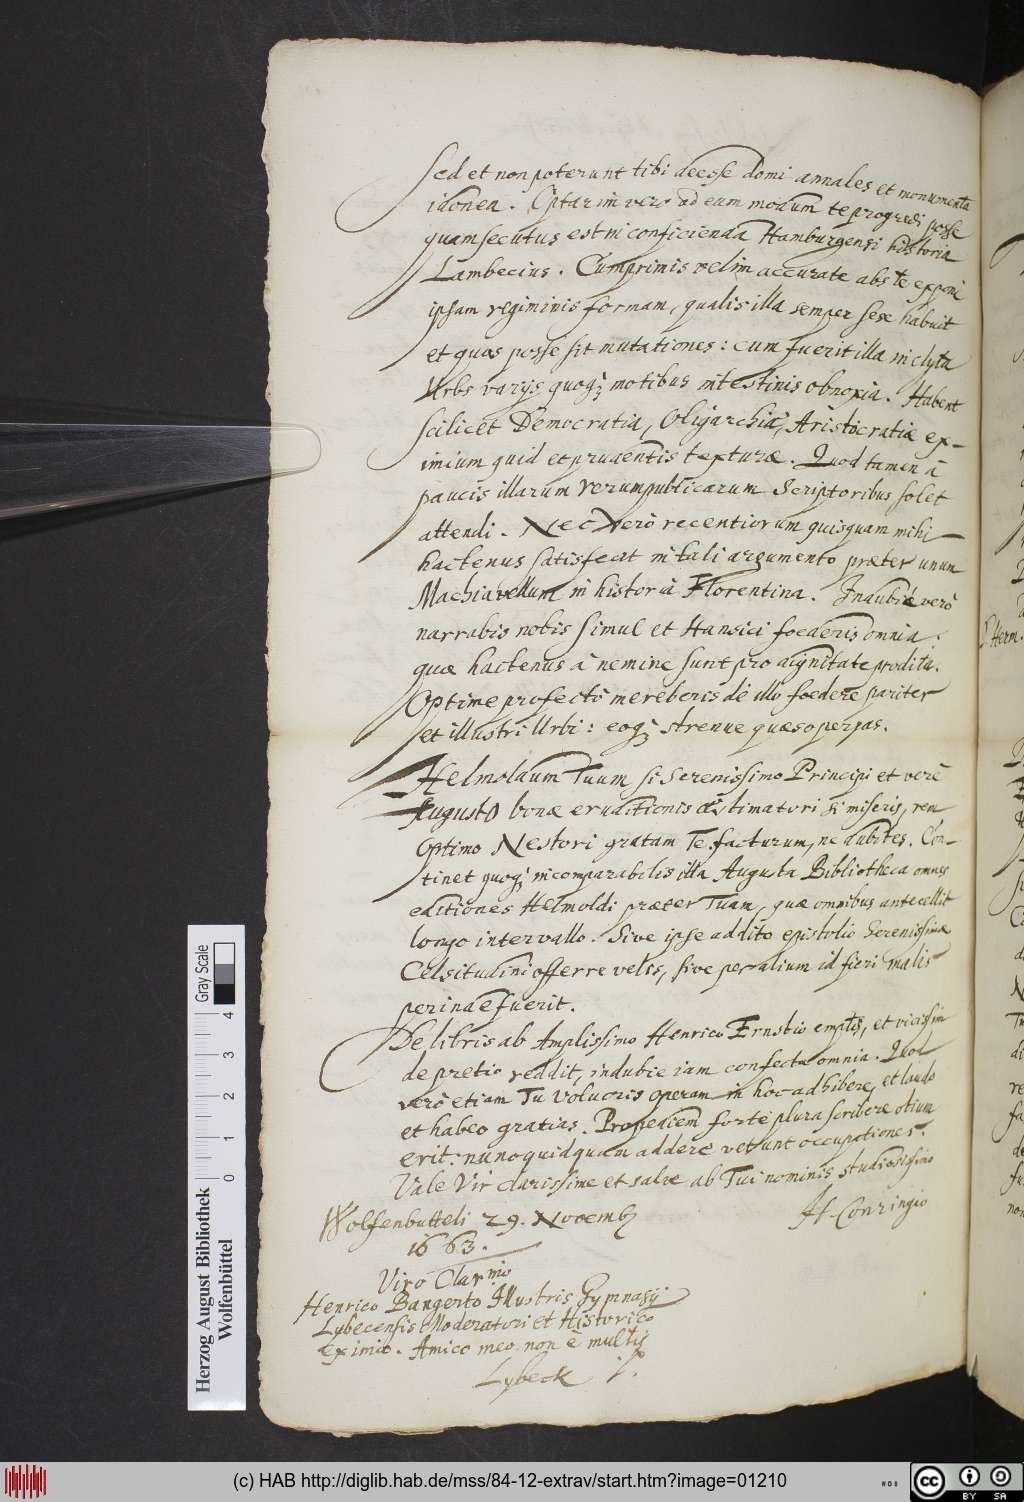 Sed et non poterunt tibi deesse domi annales et monumenta
idonea. Optarim vero ad eum modum te progredi posse
quam secutus est in conficienda Hamburgensi historia
Lambecius. Cumprimis velim accurate abs te exponi
ipsam regiminis formam, qualis illa semper sese habuit
et quas posse sit mutationes: cum fuerit illa inclyta
Urbs varijs quoq; motibus intestinis obnoxia. Habent
scilicet Democratia, Oligarchia, Aristocratia ex-
imium quid et prudentis texturæ. Quod tamen à
paucis illarum rerumpublicarum Scriptoribus solet
attendi. Nec verò recentiorum quisquam mihi
hactenus satisfecit in tali argumento præter unum
Machiavellum in historia Florentina. Indubiè verò
narrabis nobis simul et Hansici foederis omnia,
quæ hactenus à nemine sunt pro dignitate prodita.
Optime profectò mereberis de illo foedere pariter
et illustri Urbi: eoq; strenue quæso pergas.
Helmoldum Tuum si Serenissimo Principi et verè
Augusto bonæ eruditionis æstimatori si miseris, rem
optimo Nestori gratam Te facturum, ne dubites. Con-
tinet quoq; incomparabilis illa Augusta Bibliotheca omnes
editiones Helmoldi præter Tuam, quæ omnibus antecellit
longo intervallo. Sive ipse addito epistolio Serenissimæ
Celsitudini offerre velis, sive per alium id fieri malis
perinde fuerit.
De libris ab Amplissimo Henrico Ernstio emptis, et vicissim
de pretio reddit, indubie iam confecta omnia. Quod
verò etiam Tu volueris operam in hoc adhibere, et laudo
et habeo gratias. Propediem forte plura scribere otium
erit: nunc quidquam addere vetant occupationes.
Vale Vir clarissime et salve ab Tui nominis studiosissimo
H. Conringio
Wolfenbutteli 29. Novemb
1663.
Viro Clarmo
Henrico Bangerto Illustris Gymnasij
Lybecensis Moderatori et Historico
eximio. Amico meo non è multis
Lybeck
D. Herm.
Herzog August Bibliothek
Wolfenbüttel
Gray Scale
0 1 2 3 4
(c) HAB http://diglib.hab.de/mss/84-12-extrav/start.htm?image=01210
cc BY SA